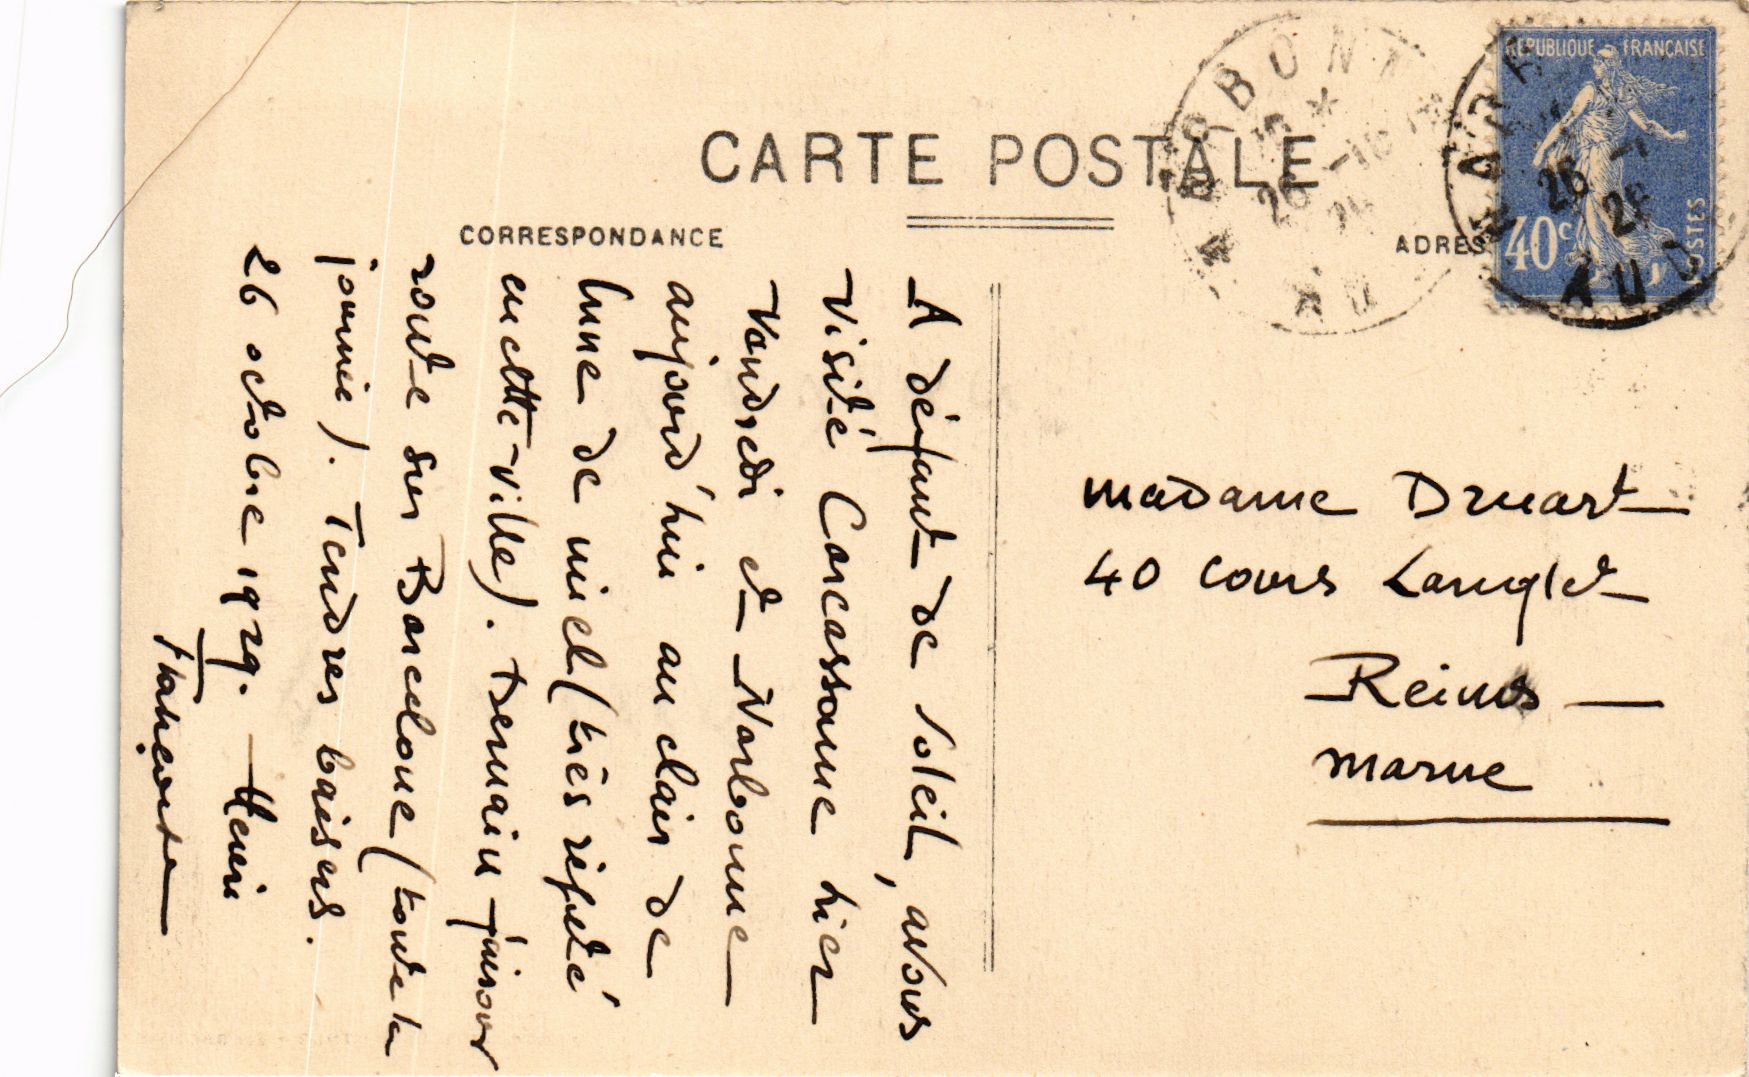 CARTE POSTALE
CORRESPONDANCE
ADRES
RÉPUBLIQUE FRANÇAISE
40c
POSTES
NARBONNE
26 -10
AUDE
A défaut de soleil, avons
visité Carcassonne hier
Vendredi et Narbonne
aujourd'hui au clair de
lune de miel (très réputé
en cette ville). Demain
route sur Barcelone (toute la
journée). Tendres baisers.
26 octobre 1929. Henri
Madame Druart
40 cours Langlet
Reims
Marne